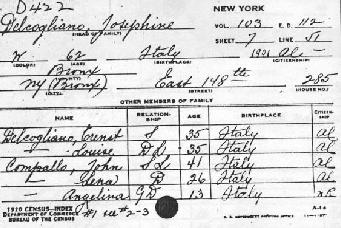 D422
NEW YORK
Delcogliano, Josephine
(HEAD OF FAMILY)
VOL. 103 E.D. 112
SHEET 7 LINE 51
W 62 Italy 1921 Al
(COLOR) (AGE) (BIRTHPLACE) (CITIZENSHIP)
Bronx
NY (Bronx) East 148th 285
(CITY) (STREET) (HOUSE NO.)
OTHER MEMBERS OF FAMILY
NAME RELATION-SHIP AGE BIRTHPLACE CITIZEN-SHIP
Delcogliano, Ernest S 35 Italy Al
— Louise DL 35 Italy Al
Compallo, John SL 41 Italy Al
— Lena D 26 Italy Al
— Angelina GD 13 Italy
1920 CENSUS—INDEX
DEPARTMENT OF COMMERCE
BUREAU OF THE CENSUS
#1 see #2-3